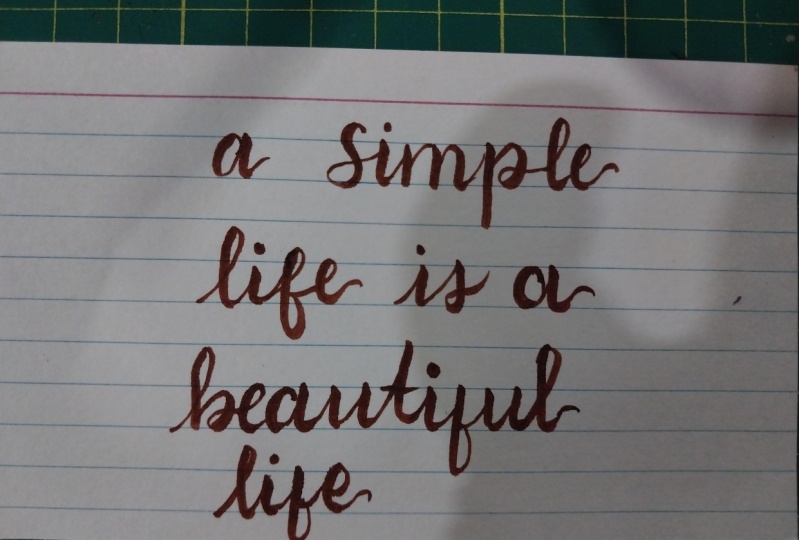 a simple
life is a
beautiful
life